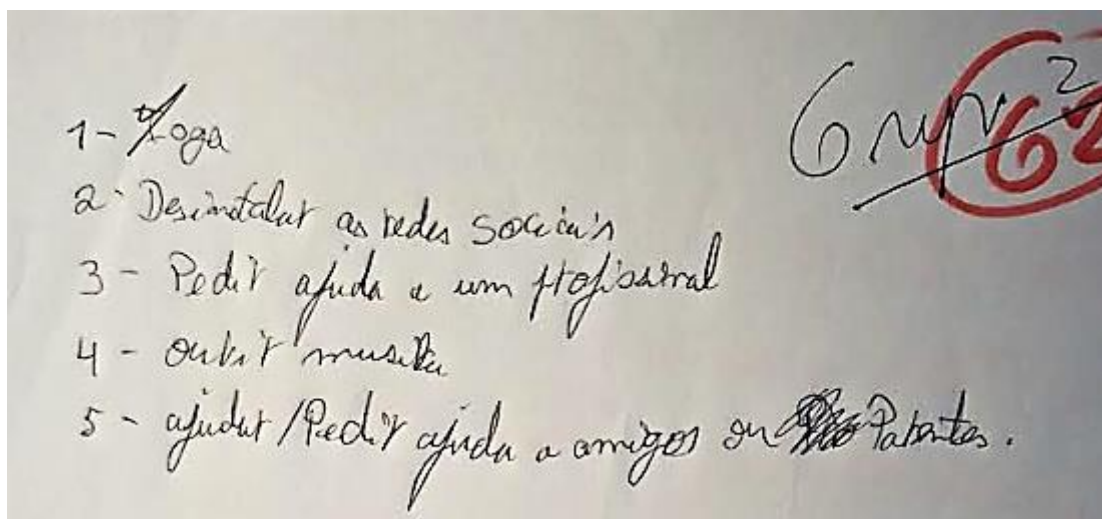 Grupo 2
G2
1- Yoga
2- Desinstalar as redes sociais
3- Pedir ajuda a um profissional
4- ouvir musica
5- ajudar/Pedir ajuda a amigos ou Parentes.